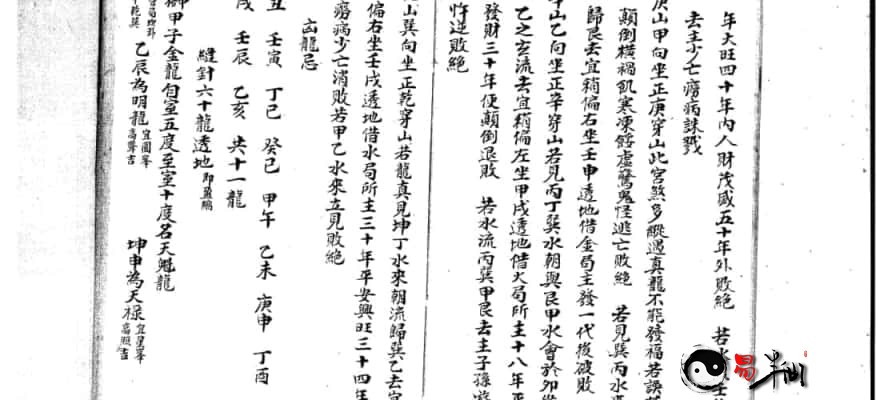 年大旺四十年內人財茂盛五十年外敗絕　若水
去主少亡癆病誅戮
庚山甲向坐正庚穿山此宮煞多縱遇真龍不能發福若誤
顛倒橫禍飢寒凍餒虛驚鬼怪逃亡敗絕　若見巽丙水
歸艮去宜稍偏右坐壬申透地借金局主發一代後破敗
山乙向坐正辛穿山若見丙丁巽水朝與艮甲水會於卯
乙之玄流去宜稍偏左坐甲戌透地借火局所主十八年
發財三十年便顛倒退敗　若水流丙巽甲艮去主子孫
忤逆敗絕
山巽向坐正乾穿山若龍真見坤丁水來朝流歸巽乙去
偏右坐壬戌透地借水局所主三十年平安興旺三十四年
癆病少亡消敗若甲乙水來立見敗絕
凶龍忌
丑　壬寅　丁巳　癸巳　甲午　乙未　庚申　丁酉
戌　壬辰　乙亥　共十一龍
縫針六十龍透地 即盈縮
甲子金龍自室五度至室十度名天魁龍
乙辰為明龍 宜圓峯高聳吉　坤申為天祿 宜星峯高照吉
易半仙